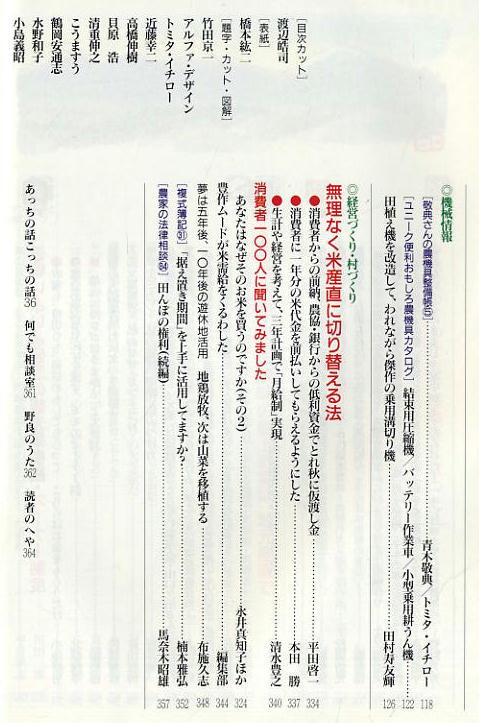 ◎機械情報
[敬典さんの農機具整備帳⑤]
青木敬典/トミタ・イチロー 118
[ユニーク便利おもしろ農機具カタログ] 結束用圧縮機/バッテリー作業車/小型乗用耕うん機 122
田植え機を改造して、われながら傑作の乗用溝切り機 田村寿友輝 126
◎経営づくり・村づくり
無理なく米産直に切り替える法
●消費者からの前納、農協・銀行からの低利資金でとれ秋に仮渡し金 平田啓一 334
●消費者に一年分の米代金を前払いしてもらえるようにした 本田 勝 337
●生計や経営を考えて、三年計画で「月給制」実現 清水豊之 340
消費者一〇〇人に聞いてみました
あなたはなぜそのお米を買うのですか(その2) 永井真知子ほか 324
豊作ムードが米需給をくるわした 編集部 344
夢は五年後、一〇年後の遊休地活用 地鶏放牧、次は山菜を移植する 布施久志 348
[複式簿記㉛]「据え置き期間」を上手に活用してますか? 楠本雅弘 352
[農家の法律相談94] 田んぼの権利(続編) 馬奈木昭雄 357
あっちの話こっちの話 36 何でも相談室 361 野良のうた 362 読者のへや 364
[目次カット]
渡辺皓司
[表紙]
橋本紘二
[題字・カット・図解]
竹田京一
アルファ・デザイン
トミタ・イチロー
近藤幸二
高橋伸樹
貝原 浩
清重伸之
こうますう
鶴岡安通志
水野和子
小島義昭